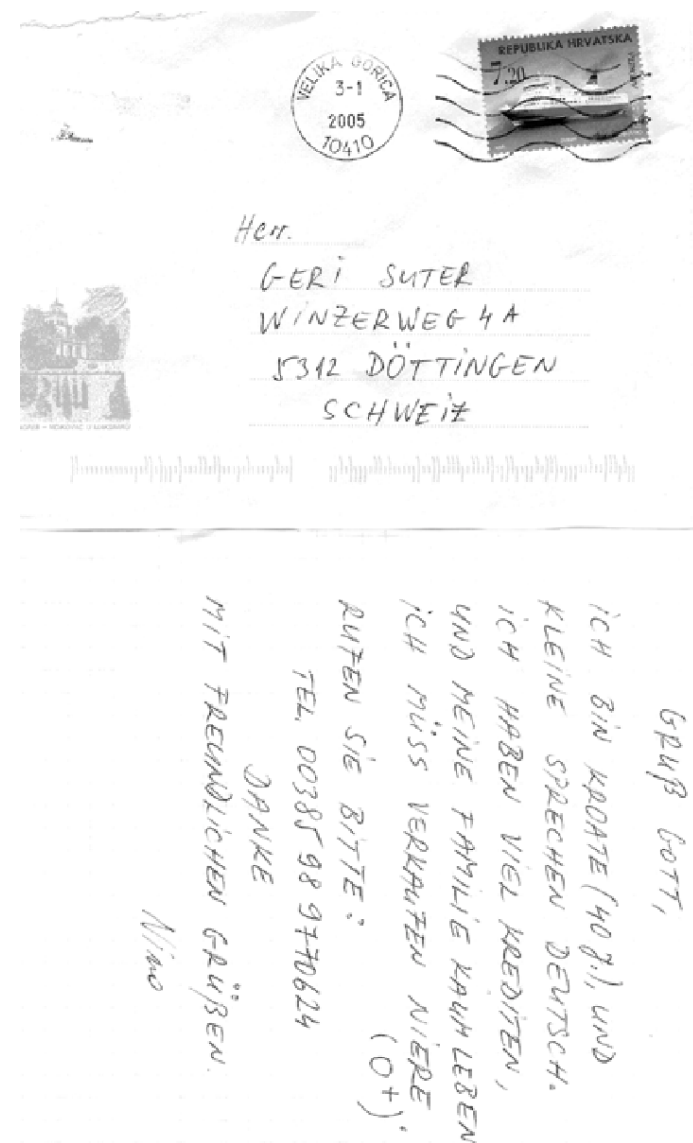 VELIKA GORICA
3-1
2005
10410
REPUBLIKA HRVATSKA
7,20
Herr.
GERI SUTER
WINZERWEG 4A
5312 DÖTTINGEN
SCHWEIZ
GRUß GOTT,
ICH BIN KROATE (40 J.), UND
KLEINE SPRECHEN DEUTSCH.
ICH HABEN VIEL KREDITEN,
UND MEINE FAMILIE KAUM LEBEN
ICH MÜSS VERKAUFEN NIERE
(0+).
RUFEN SIE BITTE:
TEL. 00385 98 9770624
DANKE
MIT FREUNDLICHEN GRÜßEN.
Nino